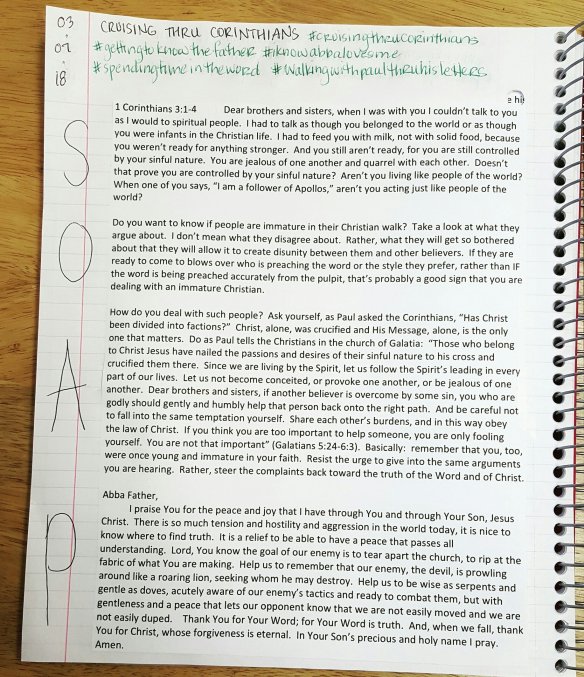 03
·
07
·
18
CRUISING THRU CORINTHIANS #cruisingthrucorinthians
#gettingtoknowthefather #iknowabbalovesme
#spendingtimeintheword #walkingwithpaulthruhisletters
S
1 Corinthians 3:1-4 Dear brothers and sisters, when I was with you I couldn't talk to you
as I would to spiritual people. I had to talk as though you belonged to the world or as though
you were infants in the Christian life. I had to feed you with milk, not with solid food, because
you weren't ready for anything stronger. And you still aren't ready, for you are still controlled
by your sinful nature. You are jealous of one another and quarrel with each other. Doesn't
that prove you are controlled by your sinful nature? Aren't you living like people of the world?
When one of you says, "I am a follower of Apollos," aren't you acting just like people of the
world?
O
Do you want to know if people are immature in their Christian walk? Take a look at what they
argue about. I don't mean what they disagree about. Rather, what they will get so bothered
about that they will allow it to create disunity between them and other believers. If they are
ready to come to blows over who is preaching the word or the style they prefer, rather than IF
the word is being preached accurately from the pulpit, that's probably a good sign that you are
dealing with an immature Christian.
A
How do you deal with such people? Ask yourself, as Paul asked the Corinthians, "Has Christ
been divided into factions?" Christ, alone, was crucified and His Message, alone, is the only
one that matters. Do as Paul tells the Christians in the church of Galatia: "Those who belong
to Christ Jesus have nailed the passions and desires of their sinful nature to his cross and
crucified them there. Since we are living by the Spirit, let us follow the Spirit's leading in every
part of our lives. Let us not become conceited, or provoke one another, or be jealous of one
another. Dear brothers and sisters, if another believer is overcome by some sin, you who are
godly should gently and humbly help that person back onto the right path. And be careful not
to fall into the same temptation yourself. Share each other's burdens, and in this way obey
the law of Christ. If you think you are too important to help someone, you are only fooling
yourself. You are not that important" (Galatians 5:24-6:3). Basically: remember that you, too,
were once young and immature in your faith. Resist the urge to give into the same arguments
you are hearing. Rather, steer the complaints back toward the truth of the Word and of Christ.
P
Abba Father,
I praise You for the peace and joy that I have through You and through Your Son, Jesus
Christ. There is so much tension and hostility and aggression in the world today, it is nice to
know where to find truth. It is a relief to be able to have a peace that passes all
understanding. Lord, You know the goal of our enemy is to tear apart the church, to rip at the
fabric of what You are making. Help us to remember that our enemy, the devil, is prowling
around like a roaring lion, seeking whom he may destroy. Help us to be wise as serpents and
gentle as doves, acutely aware of our enemy's tactics and ready to combat them, but with
gentleness and a peace that lets our opponent know that we are not easily moved and we are
not easily duped. Thank You for Your Word; for Your Word is truth. And, when we fall, thank
You for Christ, whose forgiveness is eternal. In Your Son's precious and holy name I pray.
Amen.